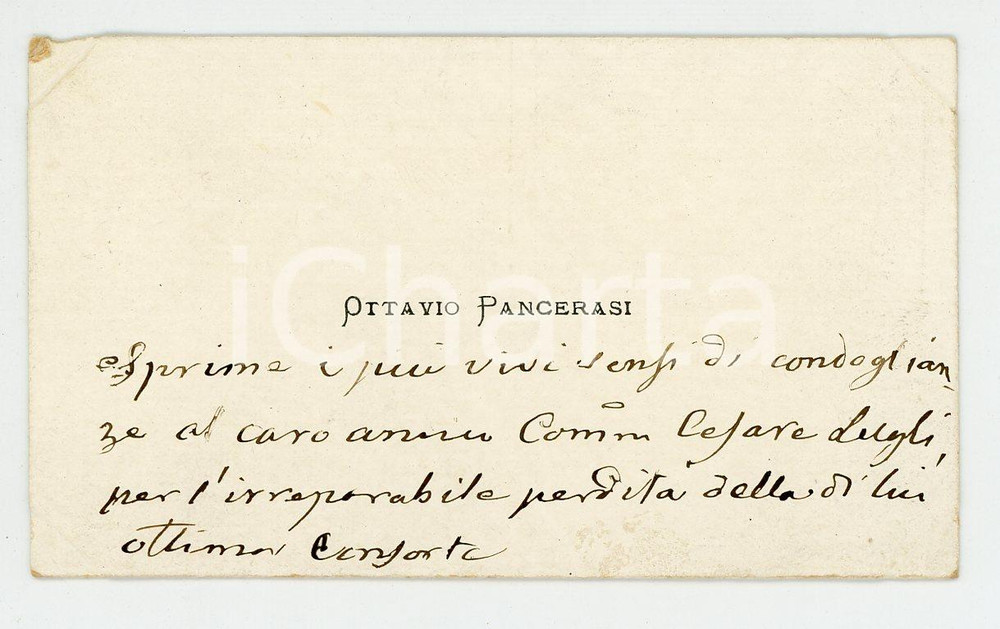 iCharta
OTTAVIO PANCERASI
esprime i più vivi sensi di condoglian-
ze al caro amico Comm Cesare Lugli,
per l'irreparabile perdita della di lui
ottima Consorte